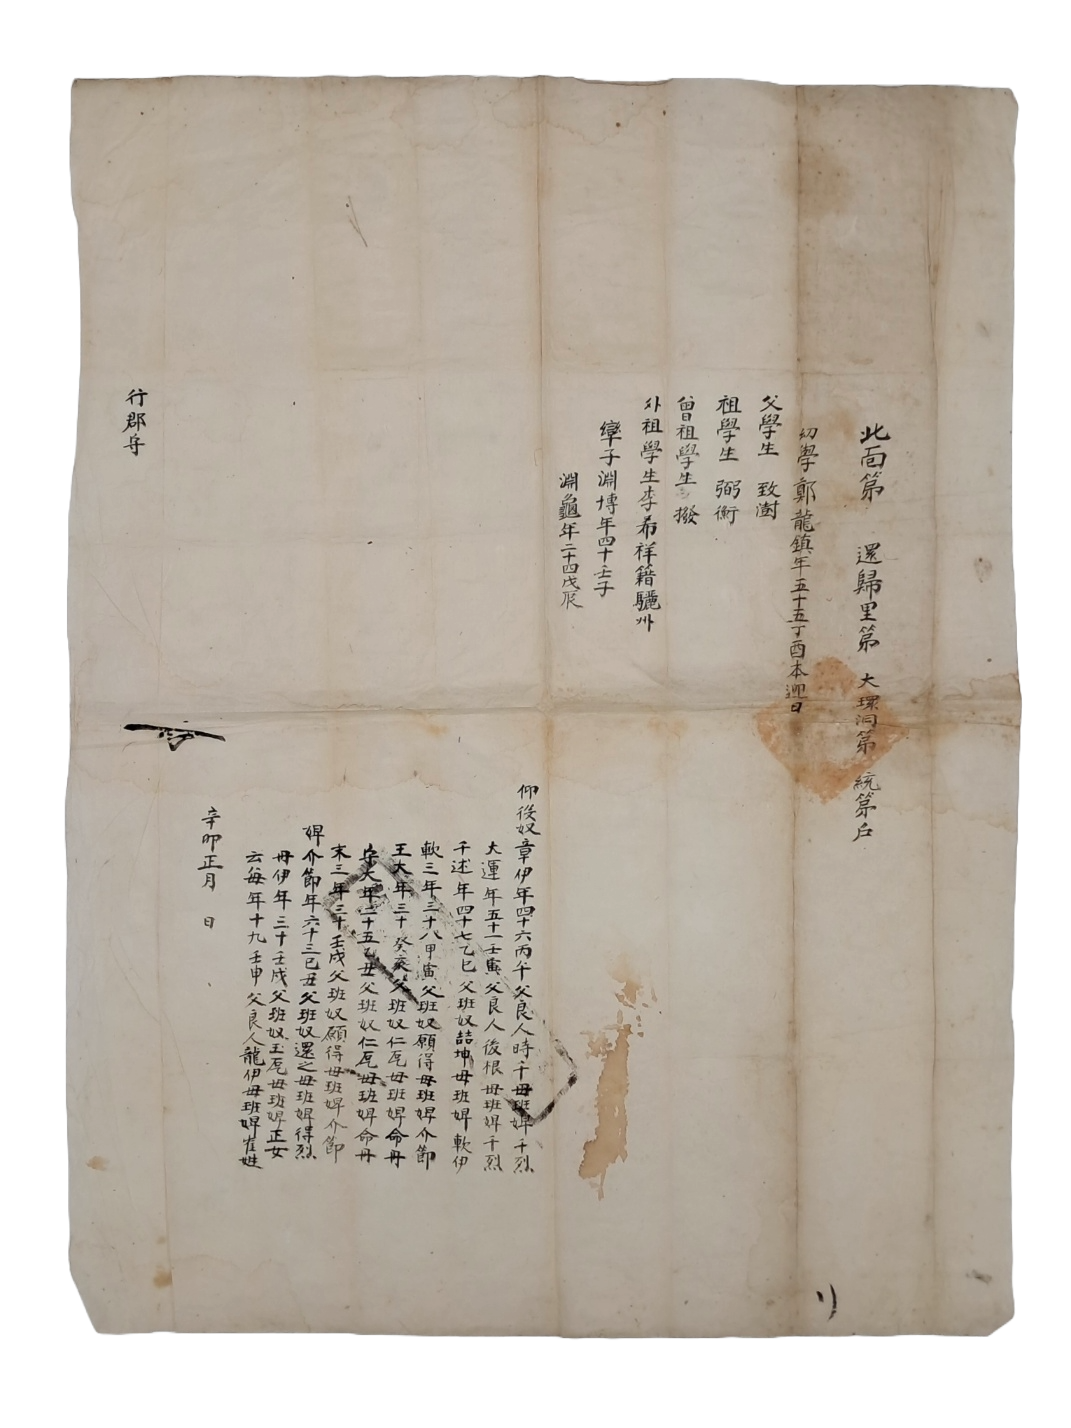 北面第 還歸里第 大環洞第 統第戶
幼學鄭龍鎮年五十五丁酉本迎日
父學生 致澍
祖學生 弼衡
曾祖學生 撥
外祖學生李希祥籍驪州
率子淵博年四十壬子
淵龜年二十四戊辰
仰役奴章伊年四十六丙午父良人時千母班婢千烈
大運年五十壬寅父良人後根母班婢千烈
千述年四十七乙巳父班奴喆坤母班婢軟伊
軟三年三十八甲寅父班奴願得母班婢介節
王大年三十癸亥父班奴仁乭母班婢命丹
安大年二十五乙丑父班奴仁乭母班婢命丹
末三年三十壬戌父班奴願得母班婢介節
婢介節年六十三己丑父班奴還之母班婢得烈
丹伊年三十壬戌父班奴玉乭母班婢正女
云每年十九壬申父良人龍伊母班婢崔姓
辛卯正月 日
行郡守